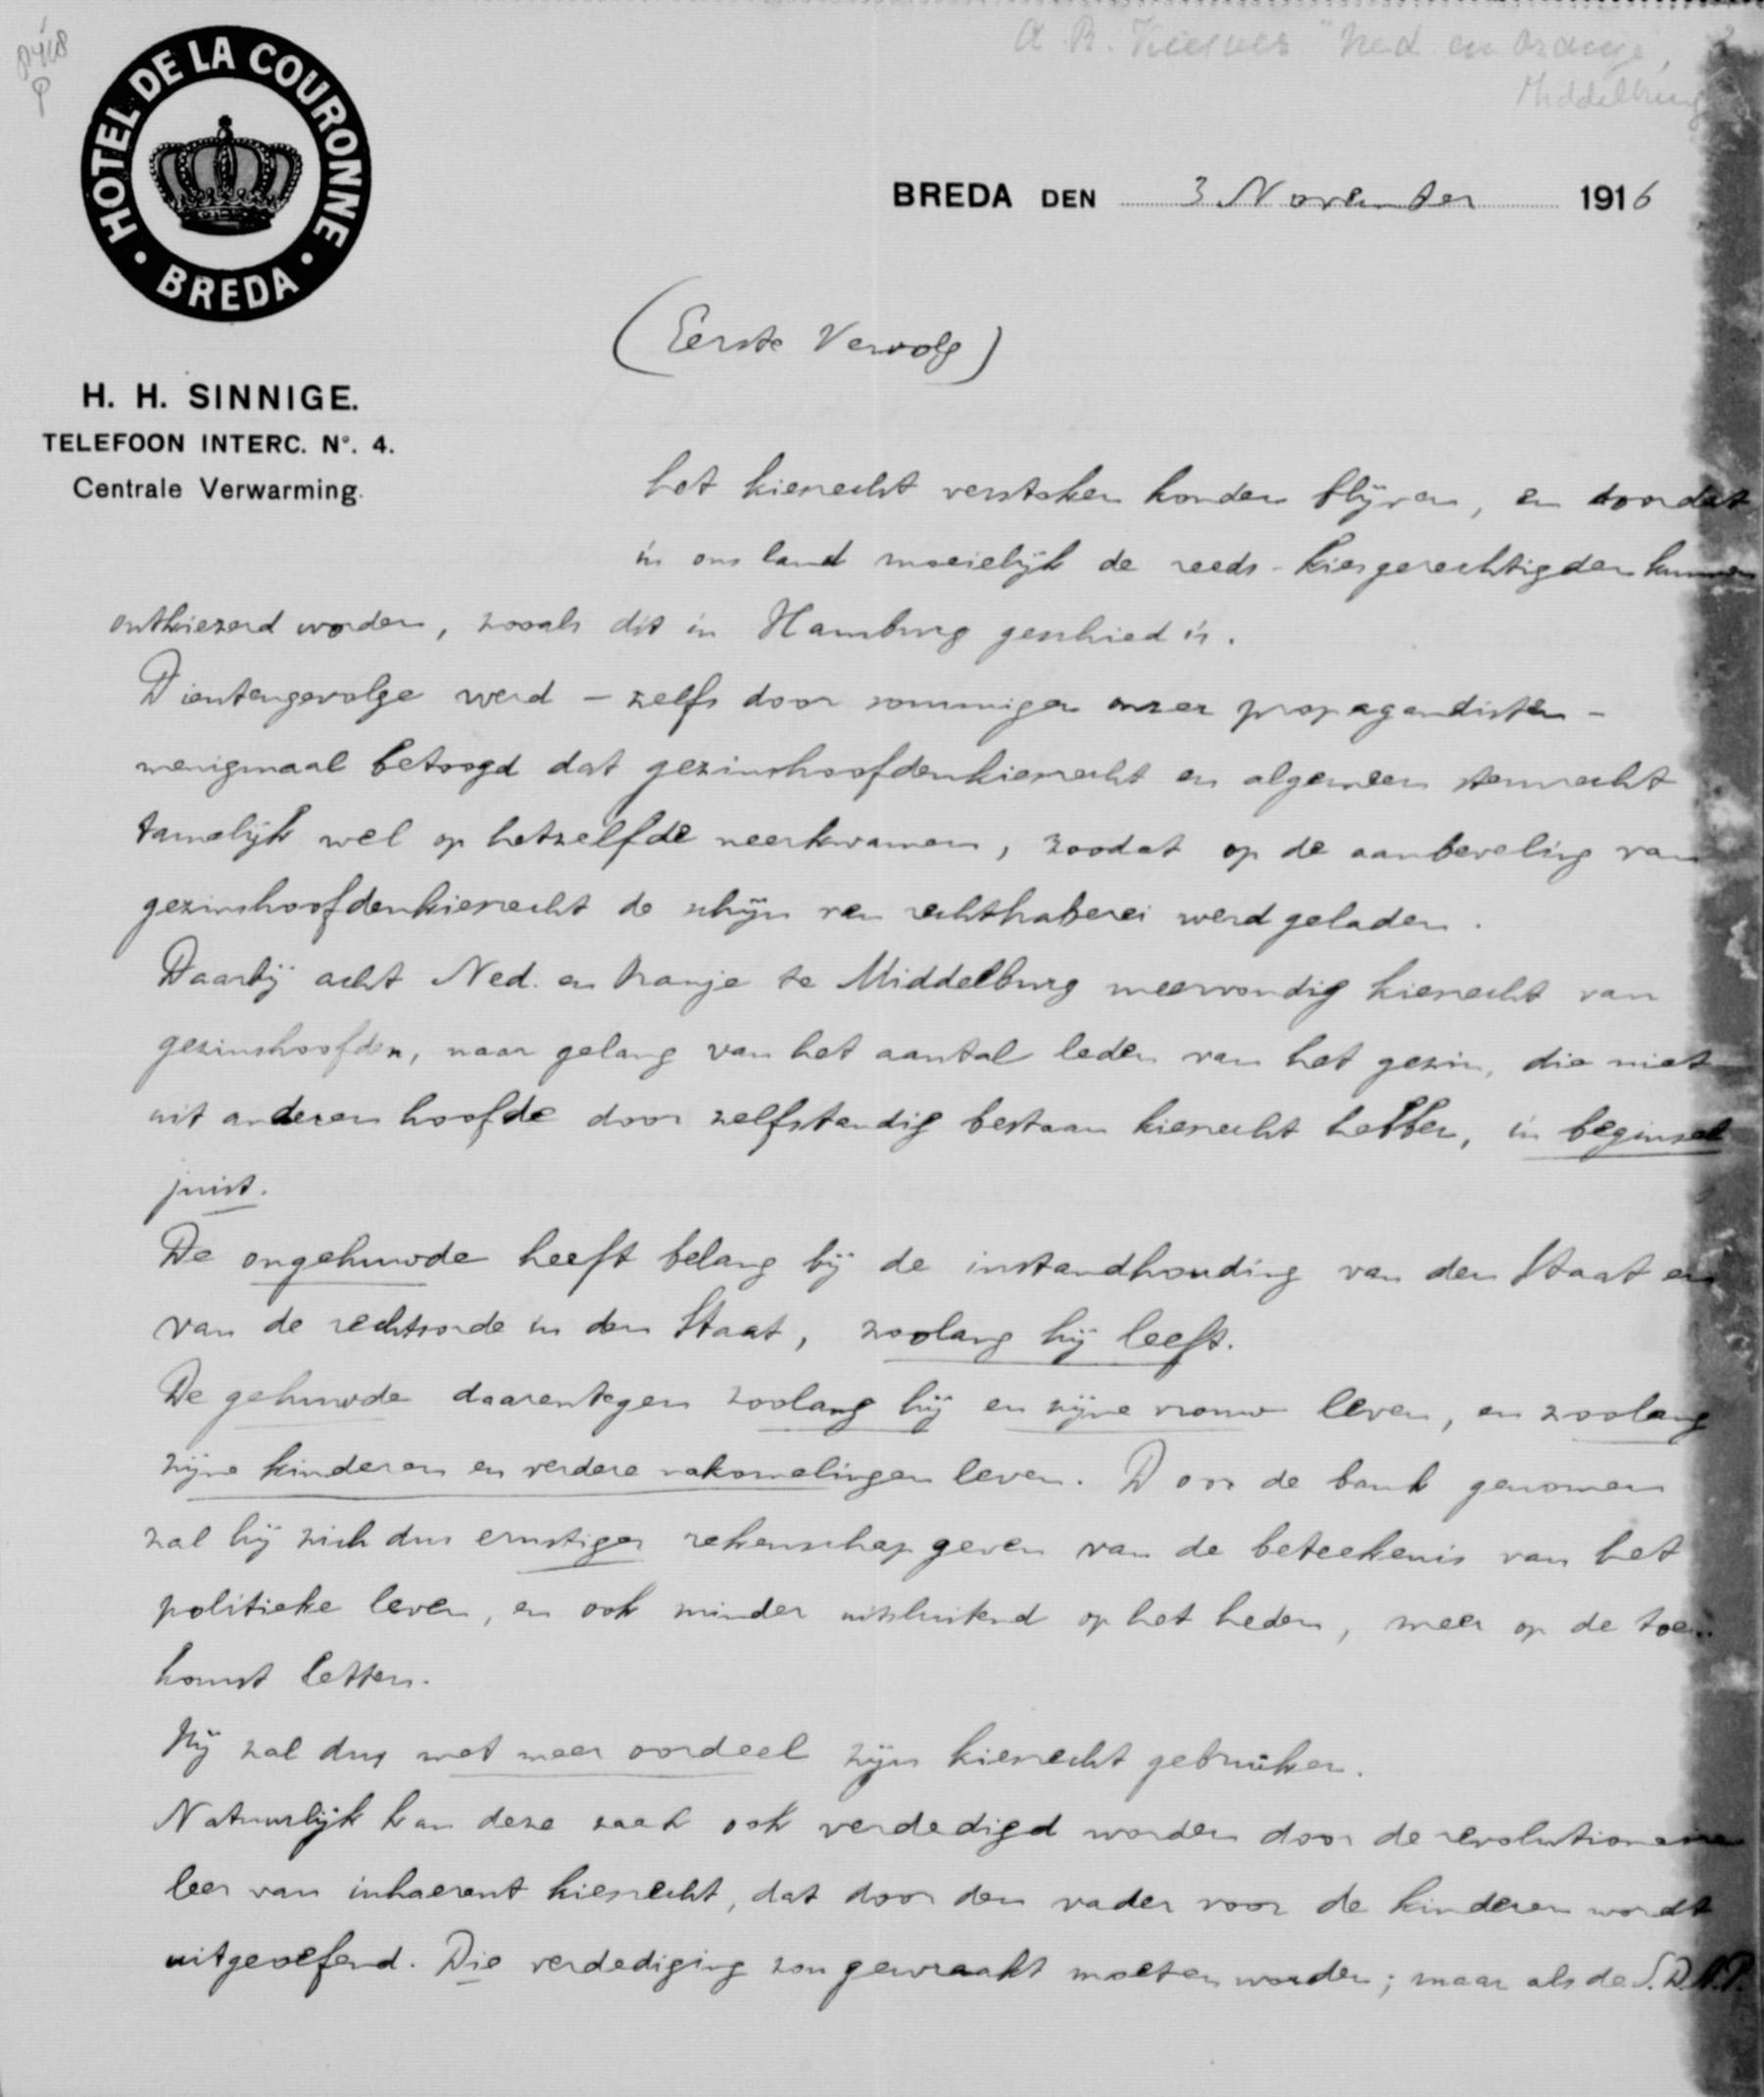 A. R. Kiesver "Ned en Oranje,
Middelburg
HOTEL DE LA COURONNE
• BREDA •
BREDA DEN 3 November 1916
(Eerste Vervolg)
H. H. SINNIGE.
TELEFOON INTERC. N°. 4.
Centrale Verwarming.
het kiesrecht verstoken konden blijven, en doordat
in ons land moeielijk de reeds-kiesgerechtigden kunnen
ontkiezerd worden, zooals dit in Hamburg geschied is.
Dientengevolge werd – zelfs door sommigen onzer propagandisten –
menigmaal betoogd dat gezinshoofdenkiesrecht en algemeen stemrecht
tamelijk wel op hetzelfde neerkwamen, zoodat op de aanbeveling van
gezinshoofdenkiesrecht de schijn van rechthaberei werd geladen.
Daarbij acht Ned. en Oranje te Middelburg meervoudig kiesrecht van
gezinshoofden, naar gelang van het aantal leden van het gezin, die niet
uit anderen hoofde door zelfstandig bestaan kiesrecht hebben, in beginsel
juist.
De ongehuwde heeft belang bij de instandhouding van den Staat en
van de rechtsorde in den Staat, zoolang hij leeft.
De gehuwde daarentegen zoolang hij en zijne vrouw leven, en zoolang
zijne kinderen en verdere nakomelingen leven. Door de bank genomen
zal hij zich dus ernstiger rekenschap geven van de beteekenis van het
politieke leven, en ook minder uitsluitend op het heden, meer op de toe-
komst letten.
Hij zal dus met meer oordeel zijn kiesrecht gebruiken.
Natuurlijk kan deze zaak ook verdedigd worden door de revolutionaire
leer van inhaerent kiesrecht, dat door den vader voor de kinderen wordt
uitgeoefend. Die verdediging zou gewraakt moeten worden; maar als de S.D.A.P.